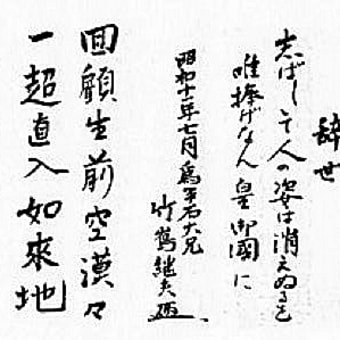 辞世
志ばし世人の姿は消えぬるも
唯捧げなん皇御國に
昭和十一年七月 為平石大兄
竹嶌継夫
回顧生前空漠々
一超直入如來地